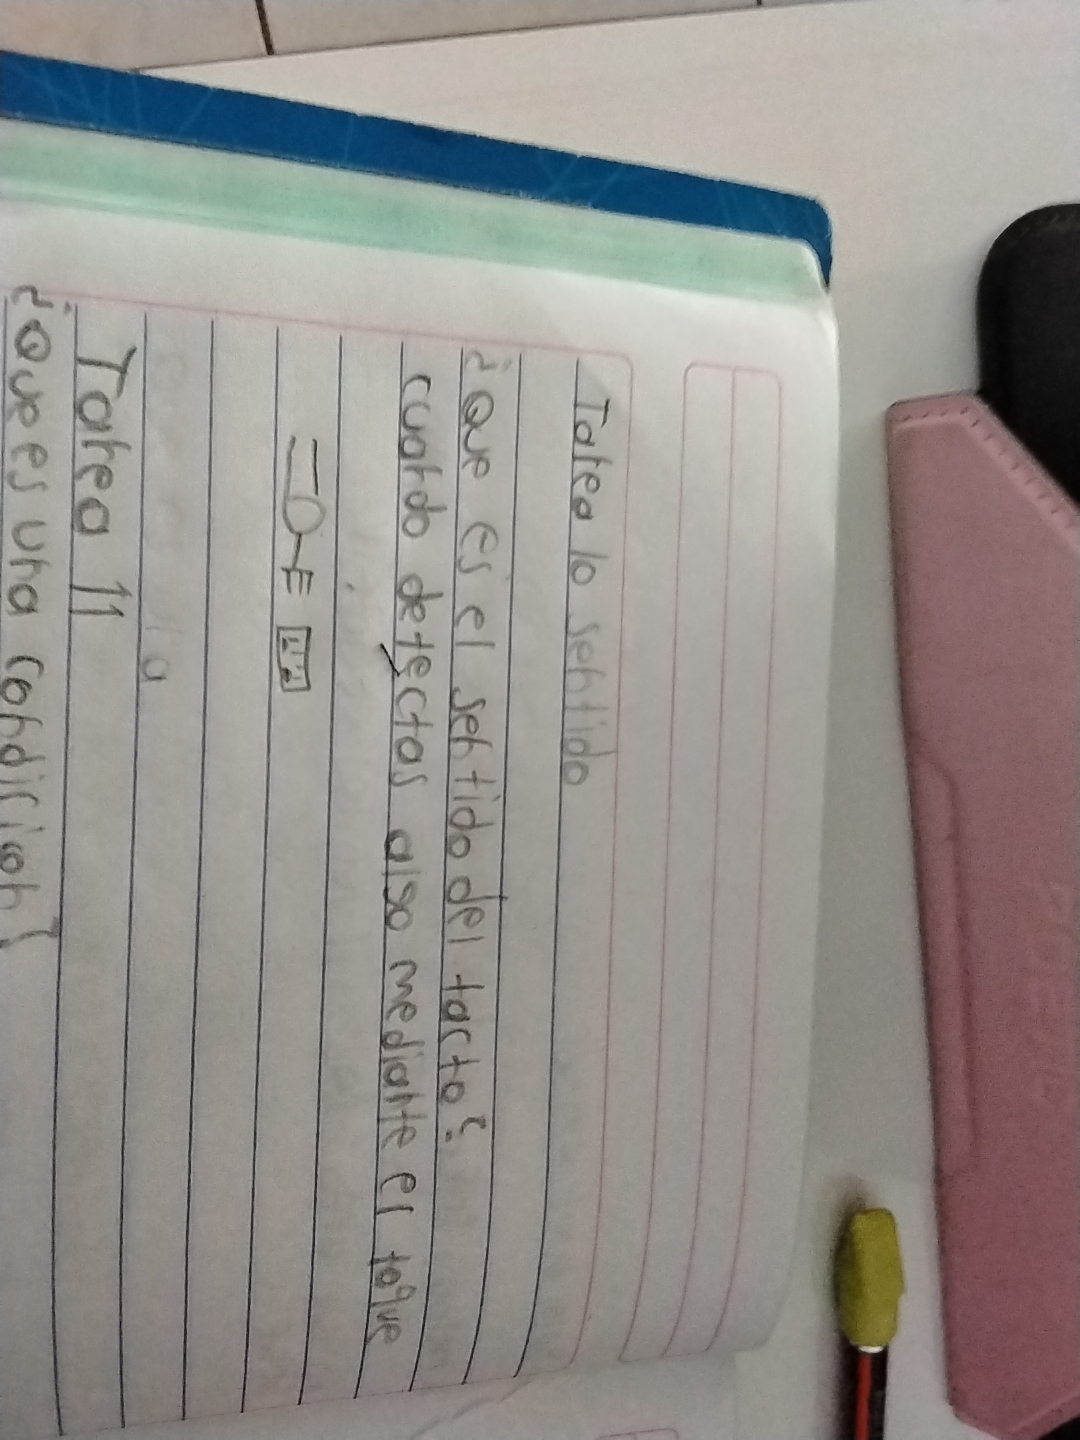 Tarea 10 sentido
¿Que es el sentido del tacto?
cuando detectas also mediante el toque
Tarea 11
¿Que es una condicion?